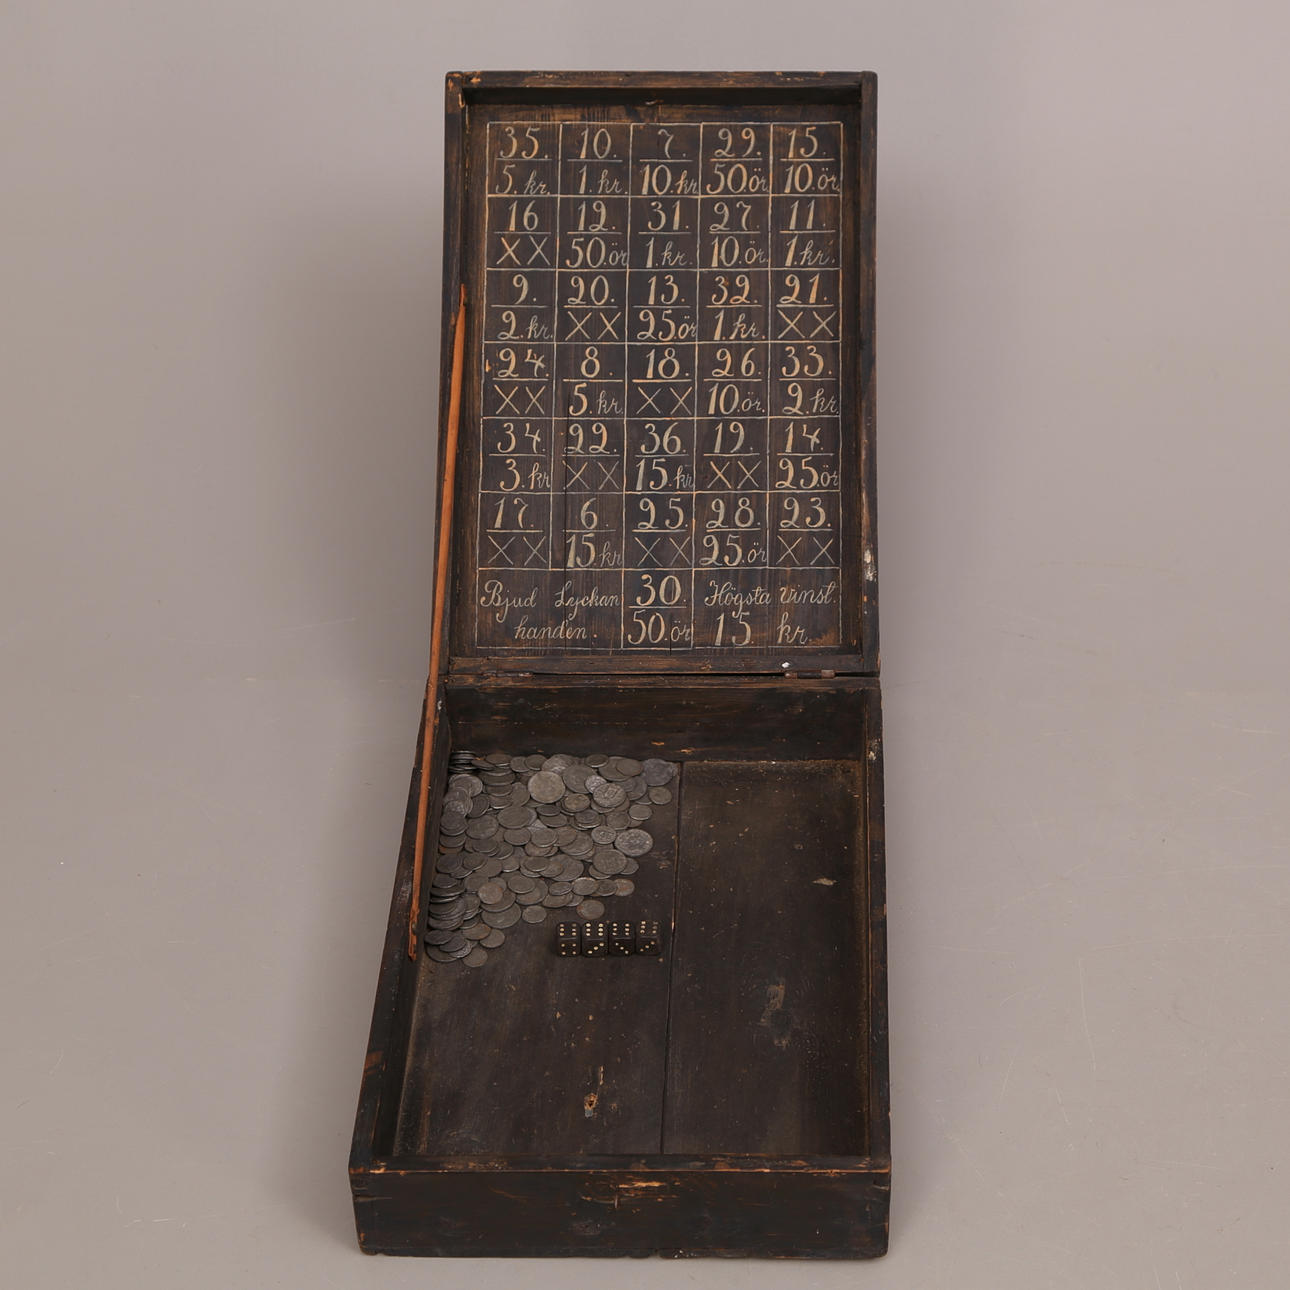 35. 10. 7. 29. 15.
5. kr. 1. kr. 10. kr 50. ör 10. ör
16 12. 31. 27. 11.
XX 50. ör 1. kr. 10. ör. 1. kr.
9. 20. 13. 32. 21.
2. kr. XX 25. ör 1. kr. XX
24 8. 18. 26. 33.
XX 5. kr. XX 10. ör. 2. kr.
34. 22. 36. 19. 14.
3. kr XX 15. kr XX 25. ör
17. 6. 25. 28. 23.
XX 15. kr XX 25. ör XX
Bjud Lyckan 30. Högsta vinst.
handen. 50. ör 15 kr.